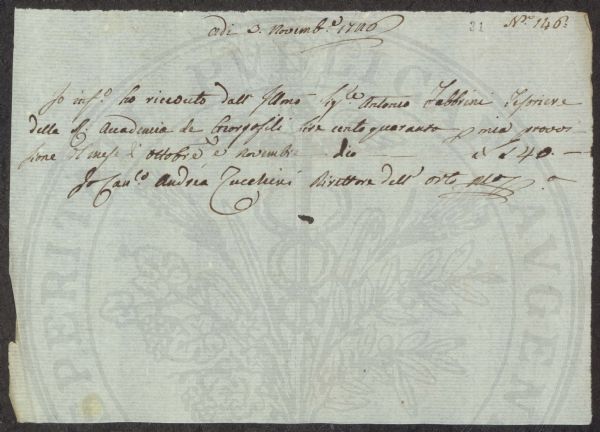 Adì 3. Novemb.e 1786
21
N.o 146:
Io inf.o ho ricevuto dall' Illmo Sig.e Antonio Fabbrini Tesoriere
della R. Accademia de Georgofili lire centoquaranta p mia provvi
sione mesi d' ottobre e novembre dico £ 140. —
Io Can.co Andrea Zucchini Direttore dell' orto
PERI
PUBLICA
AUGEN